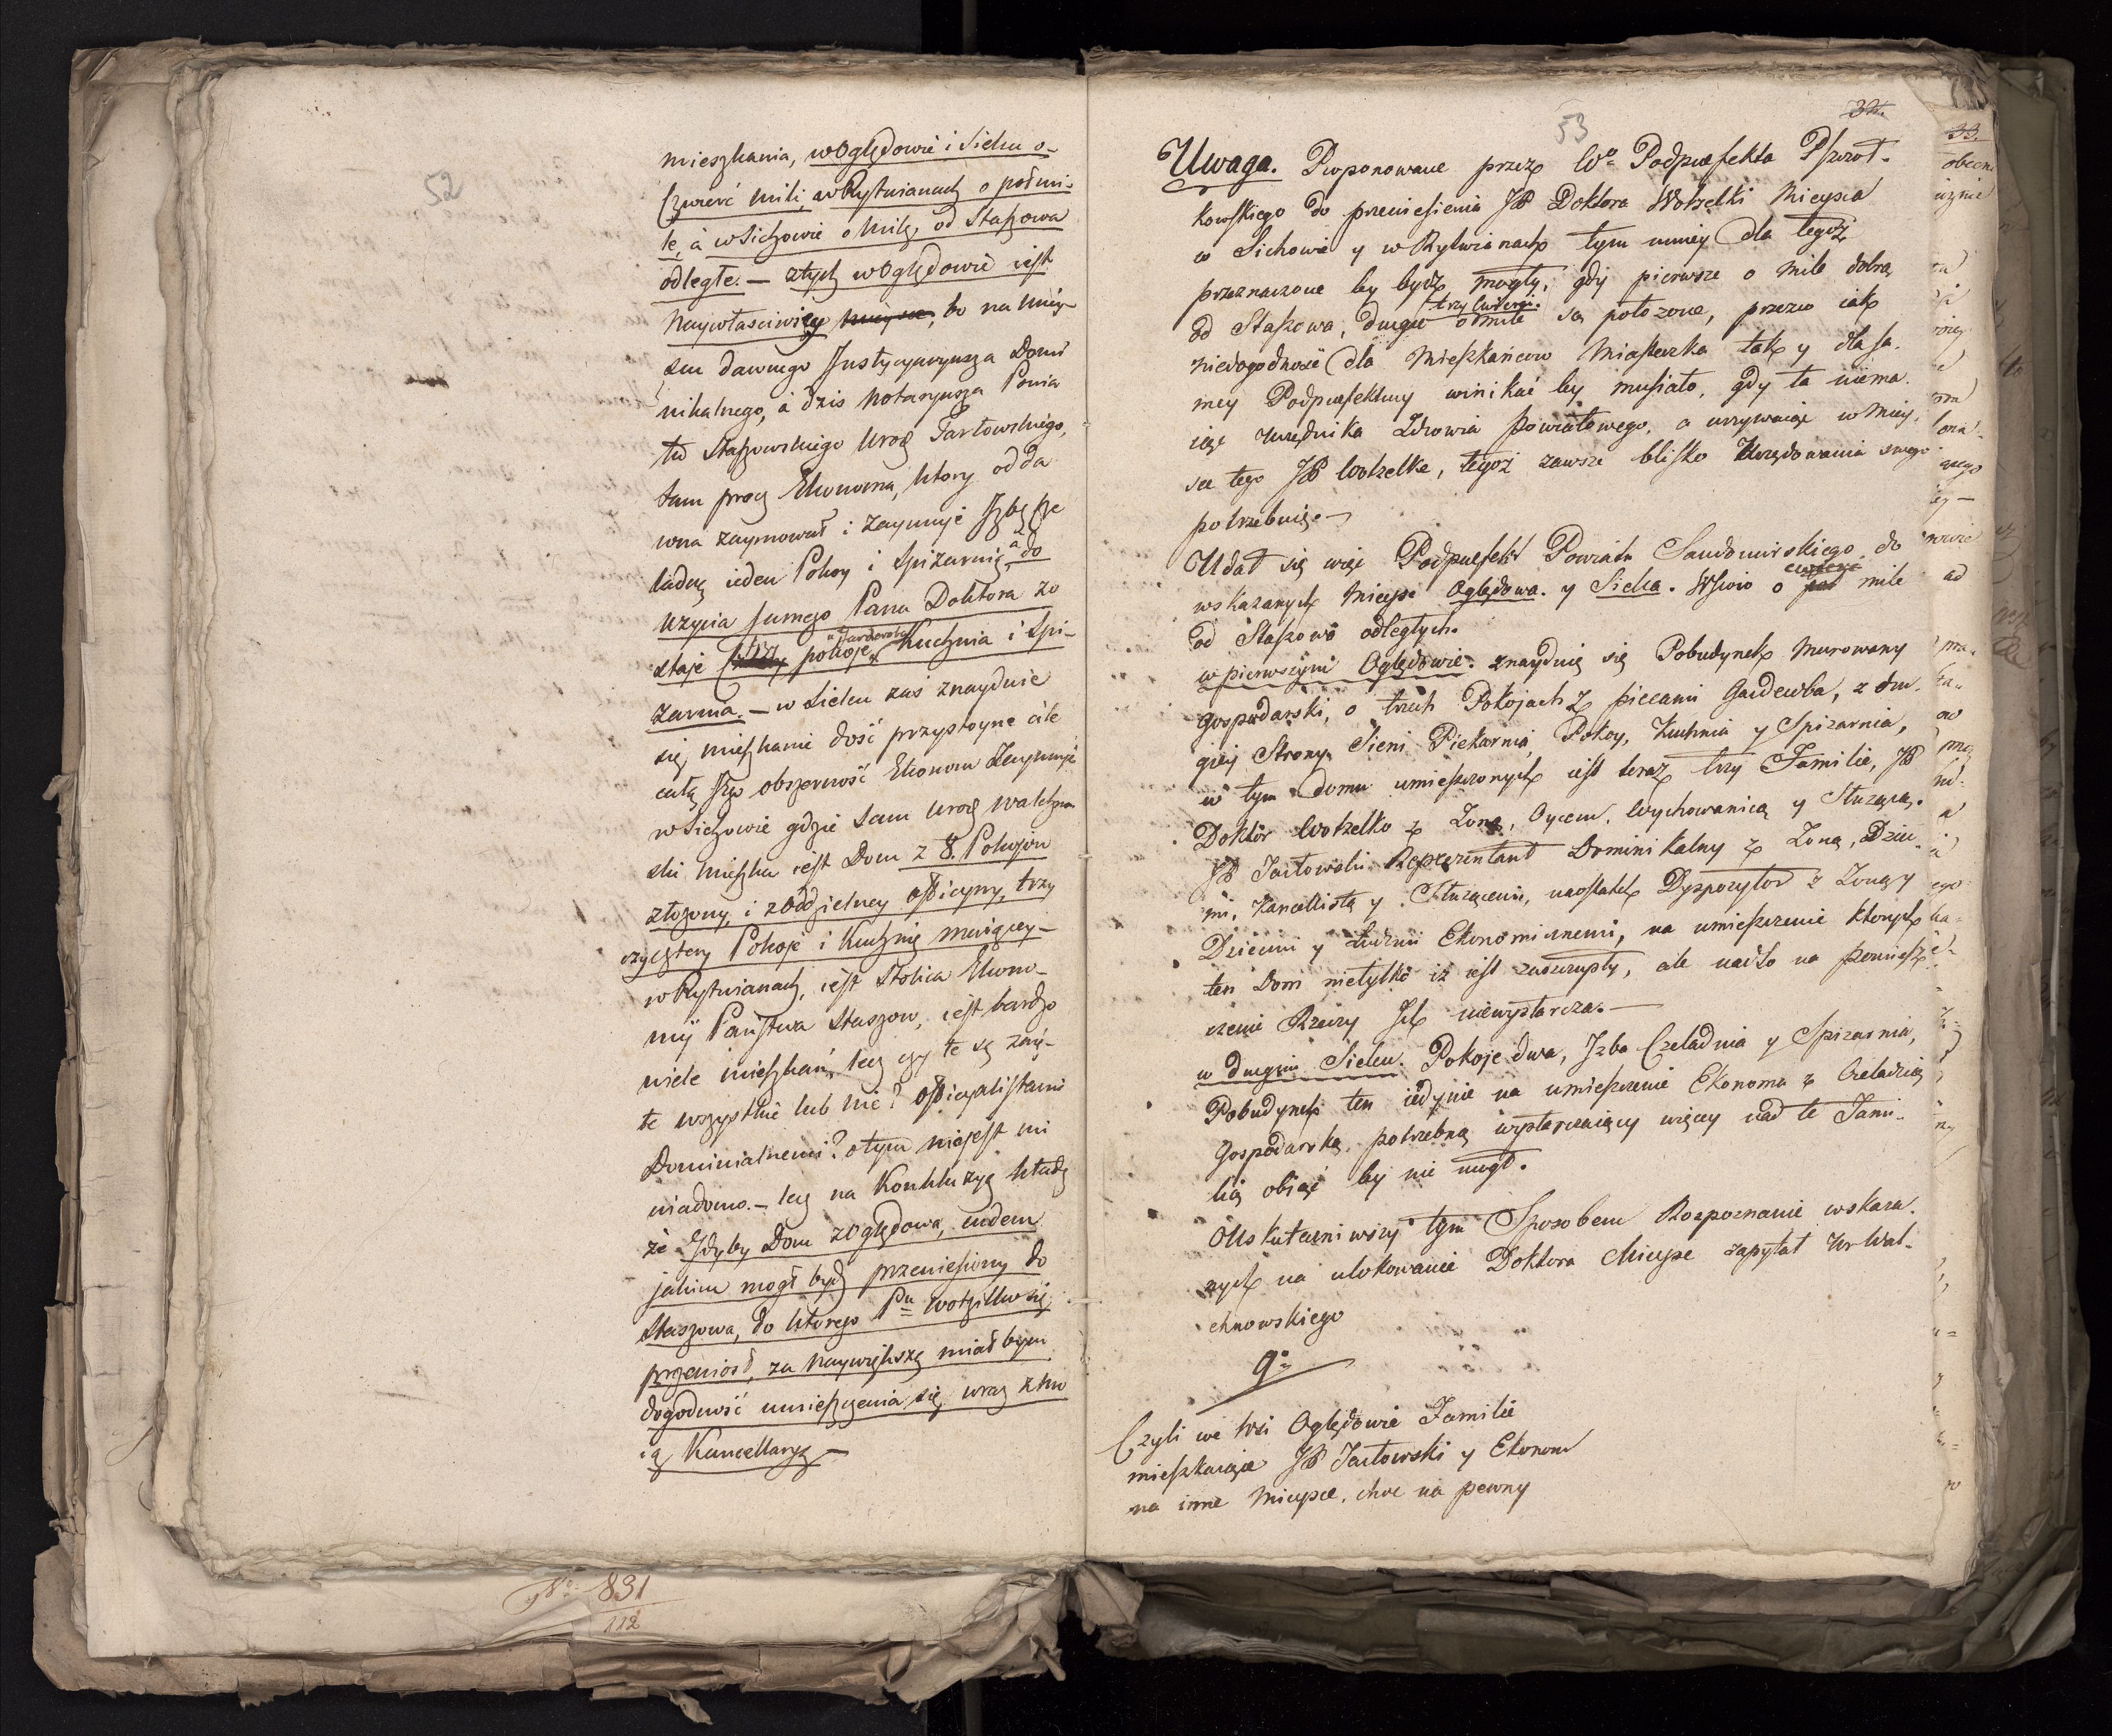 52
mieszkania, w Oględowie i Sielcu o
Czwierć mili, w Rytwianach o półmi-
le, à w Sichowie o Milę, od Staszowa
odległe. — z tych w Oględowie iest
Naywłasciwiey, bo na Miey-
scu dawnego Justycyaryusza Domi
nikalnego, à dzis Notaryusza Powia
tu Staszowskiego Uroz Tarłowskiego,
tam procz Ekonoma, ktory od da
wna zaymował i zaymuje Izbę Cze
ladną ieden Pokoy i Spiżarnię, a do
użycia samego Pana Doktora zo
staje trzy pokoje, Garderoba Kuchnia i Spi-
żarnia. — w Sielcu zaś znayduie
się mieszkanie dość przystoyne ale
całą Jego obszerność Ekonom Zaymuje
w Sichowie gdzie sam Uroz Walchnow
ski mieszka iest Dom z 8. Pokojow
złożony, i z Oddzielney Officyny, trzy
czy cztery Pokoje i Kuchnię maiącey —
w Rytwianach, iest Stolica Ekono-
mij Państwa Staszow, iest bardzo
wiele mieszkań, lecz czy te są zaię-
te wszystkie lub nie? Officyalistami
Dominialnemi? o tym nie jest mi
wiadomo. — lecz na Konkluzyą kładę
że Gdyby Dom z Oględowa, cudem
jakim mogł bydź przeniesiony do
Staszowa, do ktorego Pn Wotzelko się
przeniosł, za naywiększą miał bym
dogodność umieszczenia się wraz z Mo
ią Kancellaryą —
No 831
112
53
32.
Uwaga. Proponowane przez Wo Podprefekta Pszrot-
kowskiego do przeniesienia JP Doktora Wotzelki Mieysca
w Sichowie y w Rytwianach tym mniey dla tegoż
przeznaczone by bydź mogły, gdy pierwsze o mile dobrą
od Staszowa, drugie o trzy cwierci mile są położone, przezco iak
niedogodność dla Mieszkańcow Miasteczka tak y dla sa-
mey Podprefektury winikać by musiało, gdy ta niema-
iąc Urzędnika Zdrowia Powiatowego, a uzywaiąc w Miey-
sce tego JP Wotzelke, tegoż zawsze blisko Urzędowania swego
potrzebuię. —
Udał się więc Podprefekt Powiatu Sandomirskiego do
wskazanych Mieysc Oględowa y Sielca. Wswio o cwierc mile
od Staszowa odległych.
w pierwszym Oględowie. znayduię się Pobudynek Murowany
Gospodarski, o trzech Pokojach z piecami Garderoba, z dru-
giey Strony Sieni Piekarnia, Pokoy, Kuchnia y Spizarnia,
w tym domu umieszczonych iest teraz trzy Familie, JP
Doktor Wotzelko z Zoną, Oycem, Wychowanicą y Słuzącą.
JP Tartowski Reprezentant Dominikalny z Zoną, Dzieć-
mi, Kancellistą y Słuzącemi, naostatek Dyspozytor z Zoną y
Dziecmi y Ludzmi Ekonomicznemi, na umieszczenie ktorych
ten Dom nietylko iż iest zaszczupły, ale nadto na pomiesz-
czenie Rzeczy Ich niewystarcza. —
w drugim Sielcu. Pokoje dwa, Izba Czeladnia y Spizarnia,
Pobudynek ten iedynie na umieszczenie Ekonoma z Czeladzią
Gospodarską potrzebną wystarczaiący więcey nad te Fami-
lią obiąć by nie mogł.
Uskuteczniwszy tym Sposobem Rozpoznanie wskaza-
nych na ulokowanie Doktora Mieysc zapytał Ur Wal-
chnowskiego
9o
Czyli we Wsi Oględowie Familie
mieszkaiące JP Tartowski y Ekonom
na inne Mieysce, choc na pewny
33.